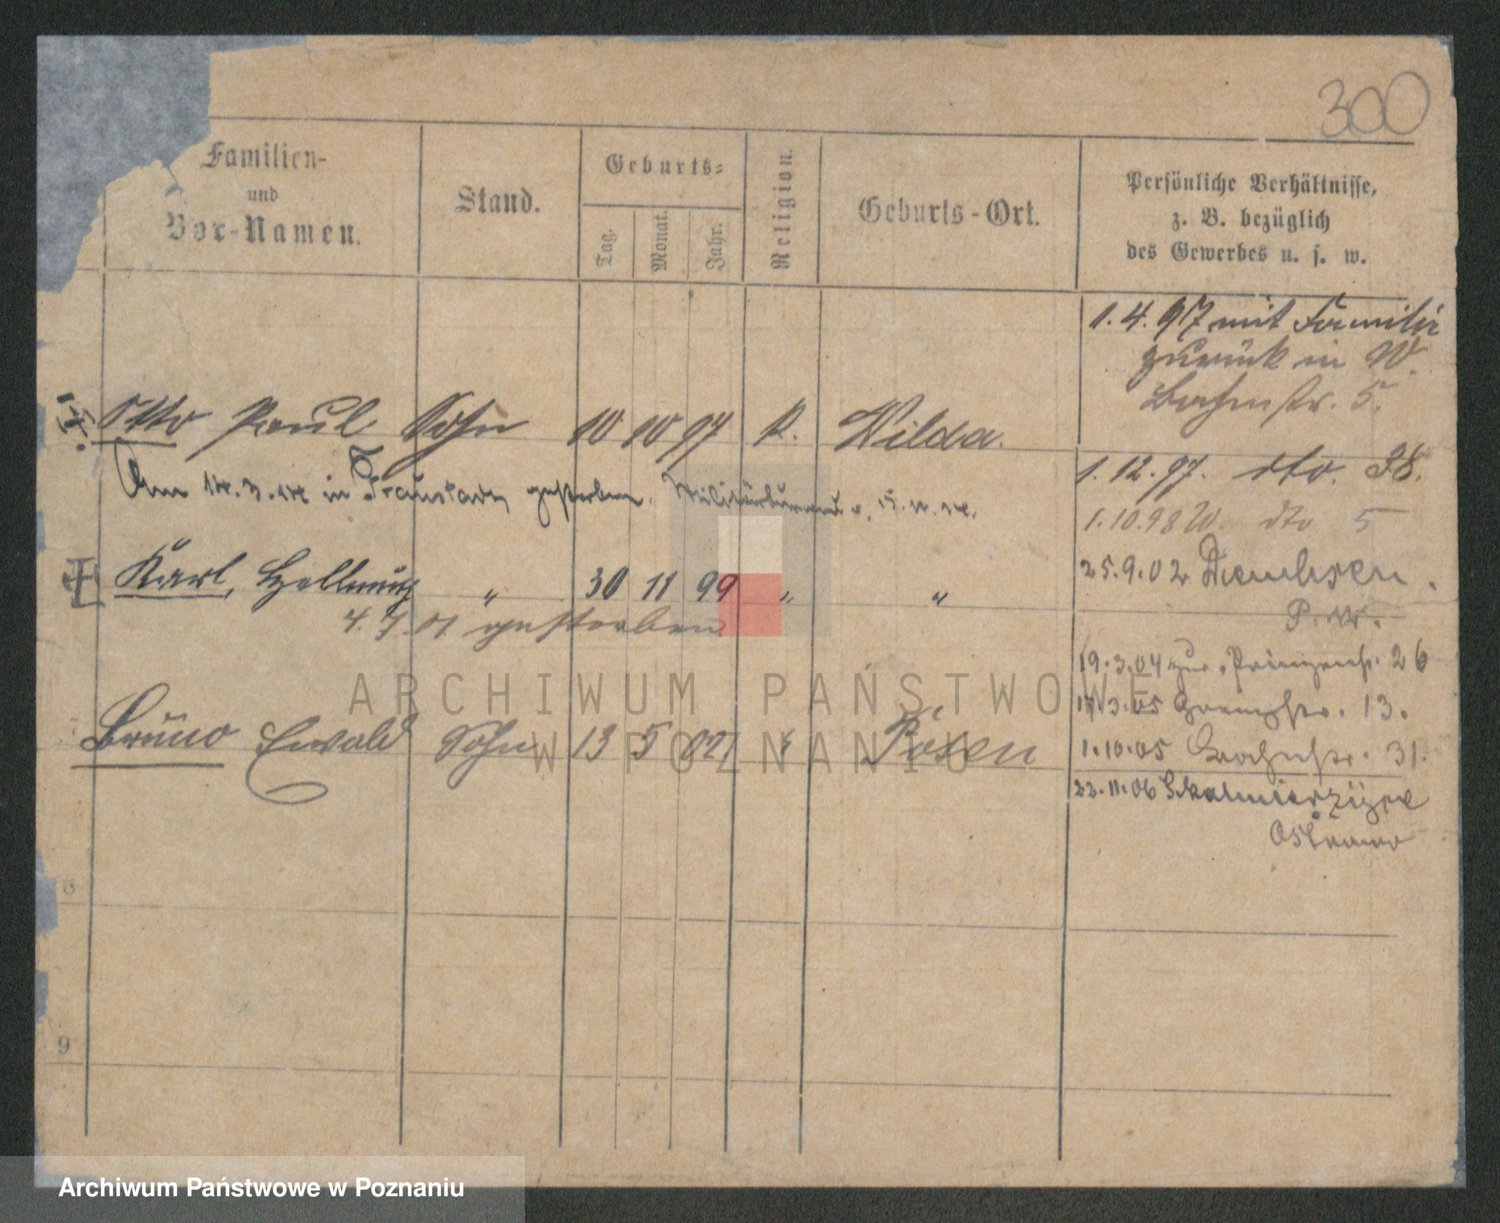 300
Familien-
und
Vor-Namen.
Stand.
Geburts-
Tag.
Monat.
Jahr.
Religion.
Geburts-Ort.
Persönliche Verhältnisse,
z. B. bezüglich
des Gewerbes u. s. w.
1.4.97 mit Familie
zurück in W.
Bahnstr. 5.
Otto Paul Sohn 10 10 97 k. Wilda.
Am 14.3.14 in Fraustadt gestorben.
1.12.97. dto. 38.
1.10.98 W. dto 5
Karl, Hellmuth " 30 11 99 " "
4.7.01 gestorben
25.9.02 Dembsen.
P. W.
19.3.04 zur. Prinzenstr. 26
17.3.05 13.
7 Bruno Ewald Sohn 13 5 02 Posen
1.10.05 Bahnstr. 31.
22.11.06 Skalmierzyce
Ostrowo
8
9
ARCHIWUM PAŃSTWOWE
W POZNANIU
Archiwum Państwowe w Poznaniu